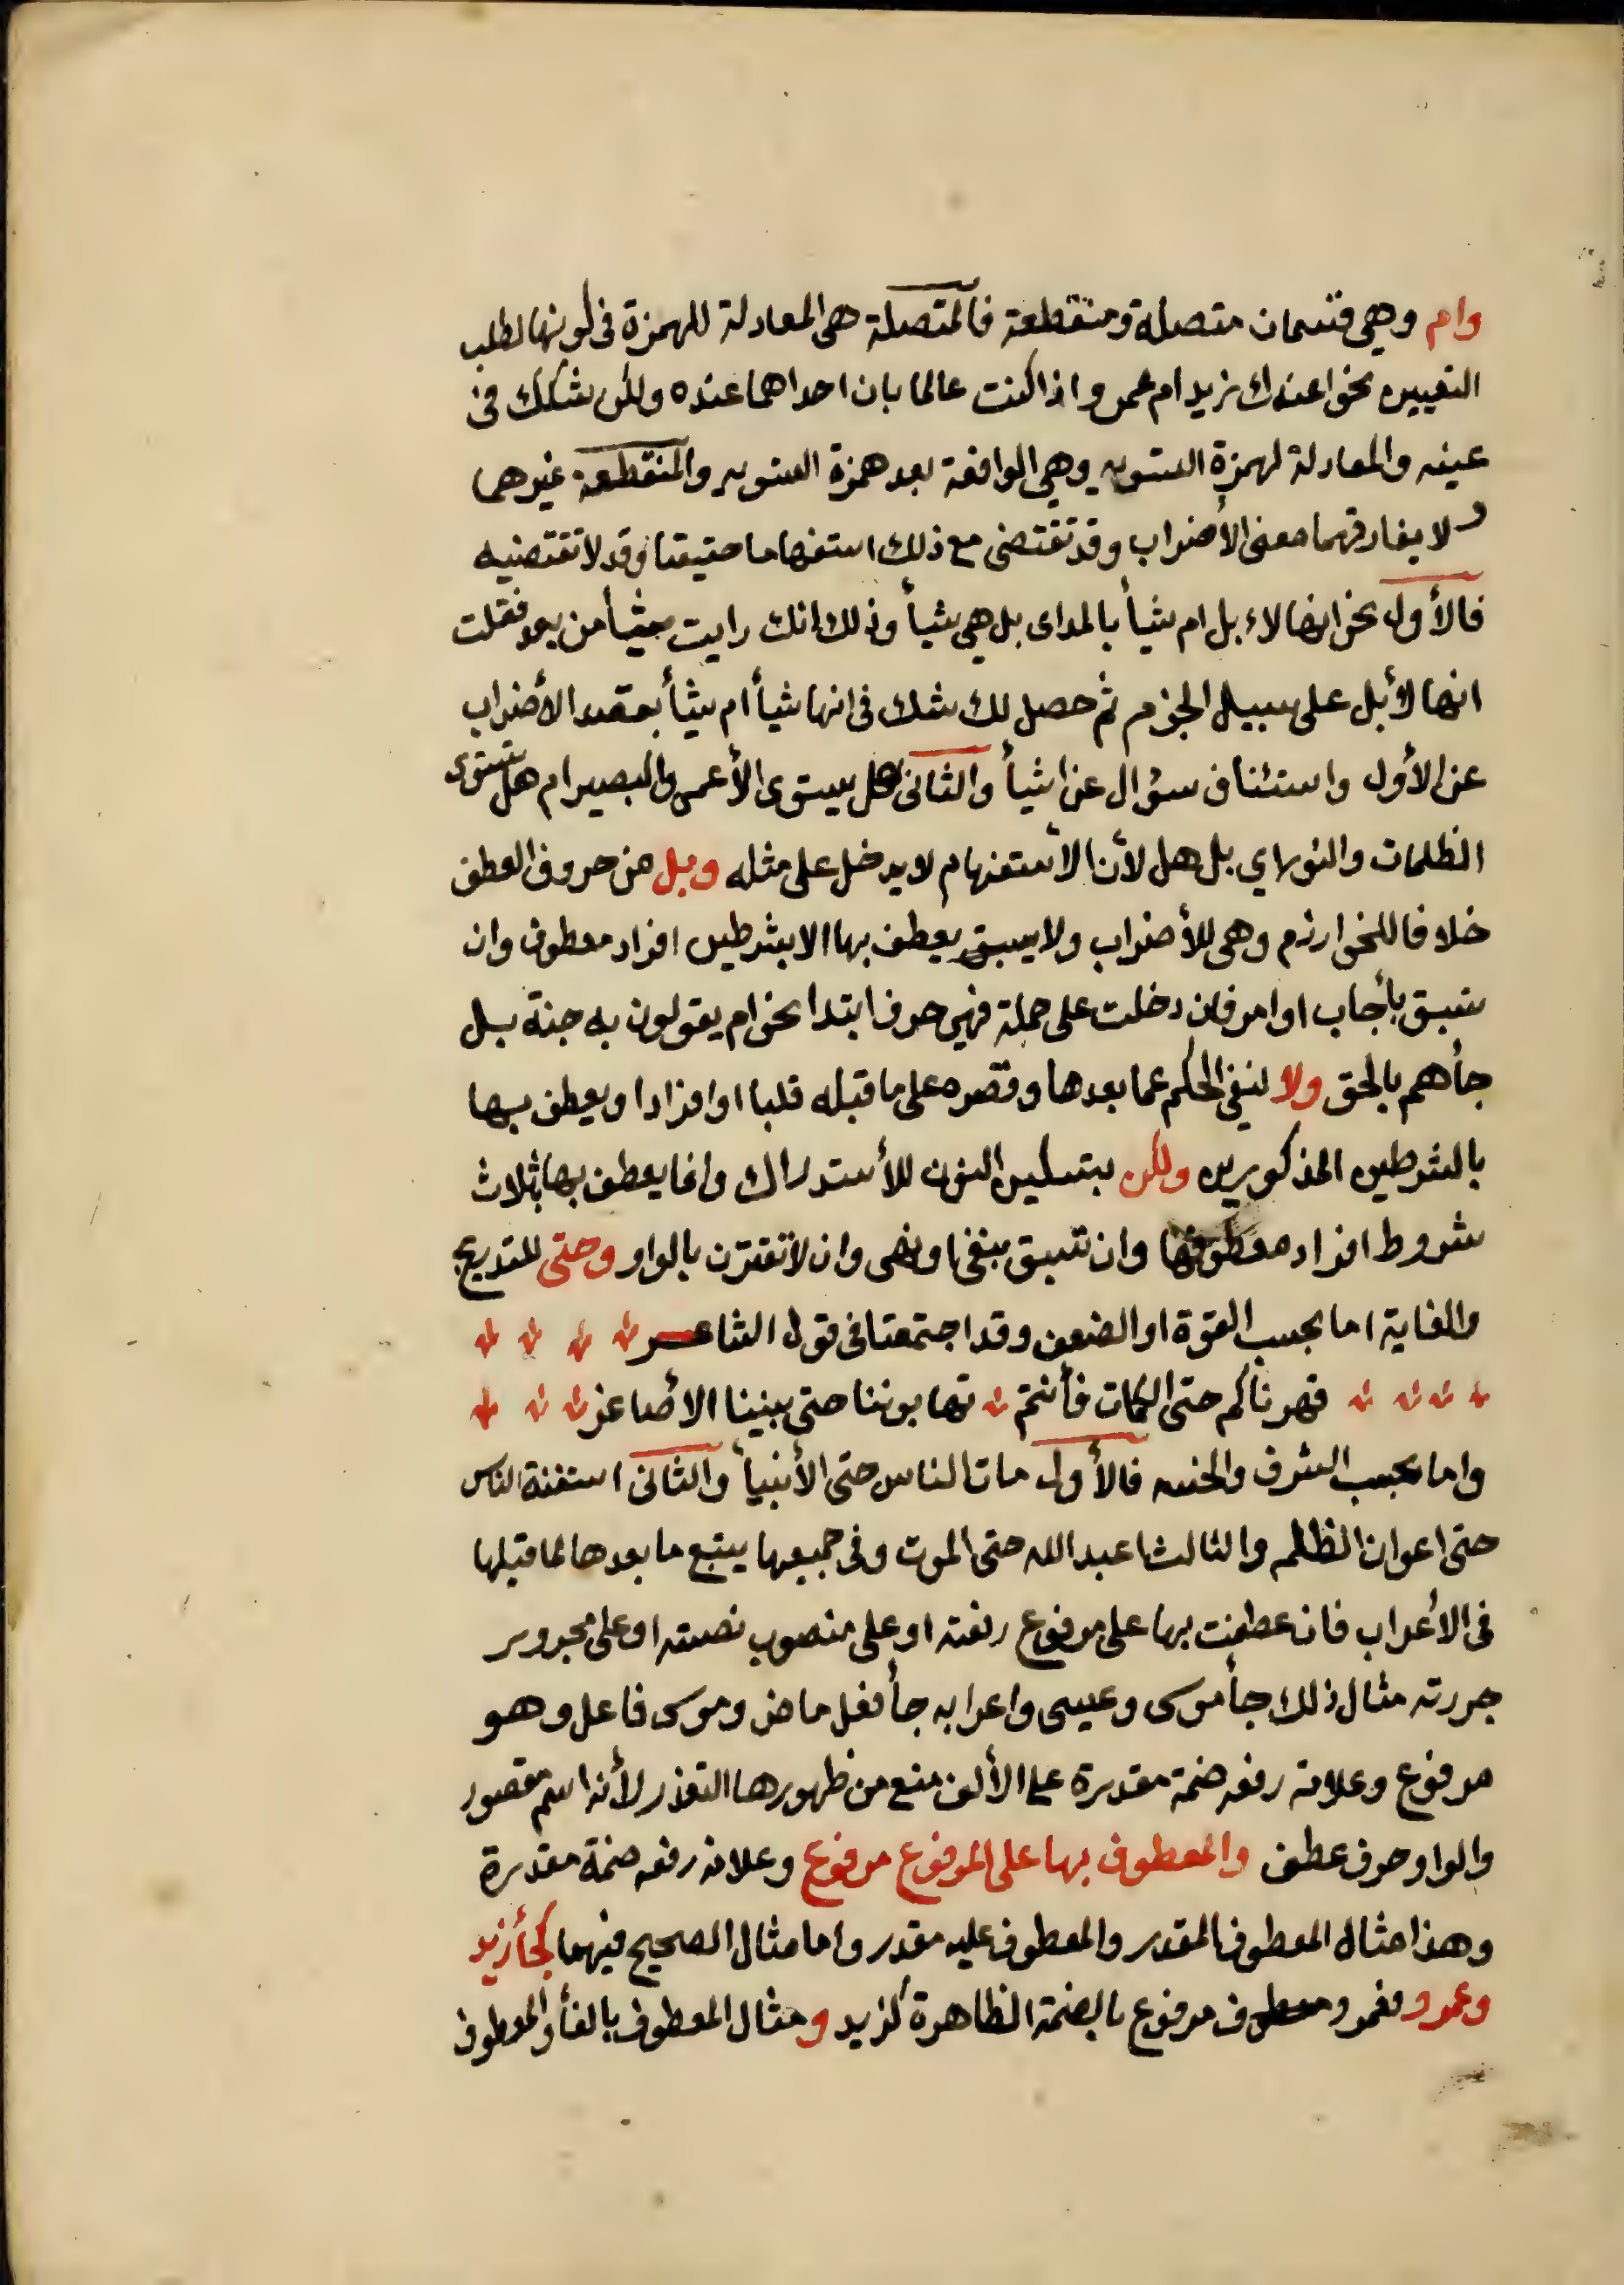 وام وهي قسمان متصلة ومنقطعة فالمتصلة هي المعادلة للهمزة في كونها لطلب
التعيين نحو اعندك زيد ام عمرو اذا كنت عالما بان احداهما عنده ولكن شكك في
عينه والمعادلة لهمزة التسويه وهي الواقعة بعد همزة التسويه والمنقطعة غيرهما
ولا يفارقهما معنى الأضراب وقد تقتضي مع ذلك استفهاما حقيقتا وقد لا تقتضيه
فالأول نحو انها لاء بل ام شيأ بالمد اى بل هي شيأ وذلك انك رايت جثيأ من بعد فقلت
انها لأبل على سبيل الجزم ثم حصل لك شك في انها شيأ ام شيأ بعقد الأضراب
عن الأول واستئناف سؤال عن اشيأ والثاني هل يستوى الأعمى والبصير ام هل تستوى
الظلمات والنور اي بل هل لأن الأستفهام لا يدخل على مثله وبل من حروف العطف
خلافا للخوارزم وهي للأضراب ولا يسبق يعطف بها الا بشرطين افراد معطوف وان
تسبق بأجاب او امر فان دخلت على جملة فهي حرف ابتدا نحو ام يقولون به جنة بل
جأهم بالحق ولا لنفي الحكم عما بعدها وقصره على ما قبله قلبا او افرادا ويعطف بها
بالشرطين المذكورين ولكن بتسكين النون للأستدراك وانما يعطف بها بثلاث
شروط افراد معطوفها وان تسبق بنفي او نهى وان لا تقترن بالواو وحتى للتدريج
والغاية اما بحسب القوة او الضعف وقد اجتمعتا في قول الشاعر
قهرناكم حتى الكمات فأنتم تهابوننا حتى بنينا الأصاغر
واما بحسب الشرف والخسه فالأول مات الناس حتى الأنبيأ والثاني استغنة الناس
حتى اعوان الظلم والثالث اعبد الله حتى الموت وفي جميعها يتبع ما بعدها لما قبلها
في الأعراب فان عطفت بها على مرفوع رفعته او على منصوب نصبته او على مجرور
جررته مثال ذلك جأ موسى وعيسى واعرابه جأ فعل ماض وموسى فاعل وهو
مرفوع وعلامة رفعه ضمة مقدرة على الألف منع من ظهورها التعذر لأنه اسم مقصور
والواو حرف عطف والمعطوف بها على المرفوع مرفوع وعلامة رفعه ضمة مقدرة
وهذا مثال المعطوف المقدر والمعطوف عليه مقدر واما مثال الصحيح فيهما كجأ زيد
وعمرو فعمرو معطوف مرفوع بالضمة الظاهرة كزيد ومثال المعطوف بالفأ والمعطوف